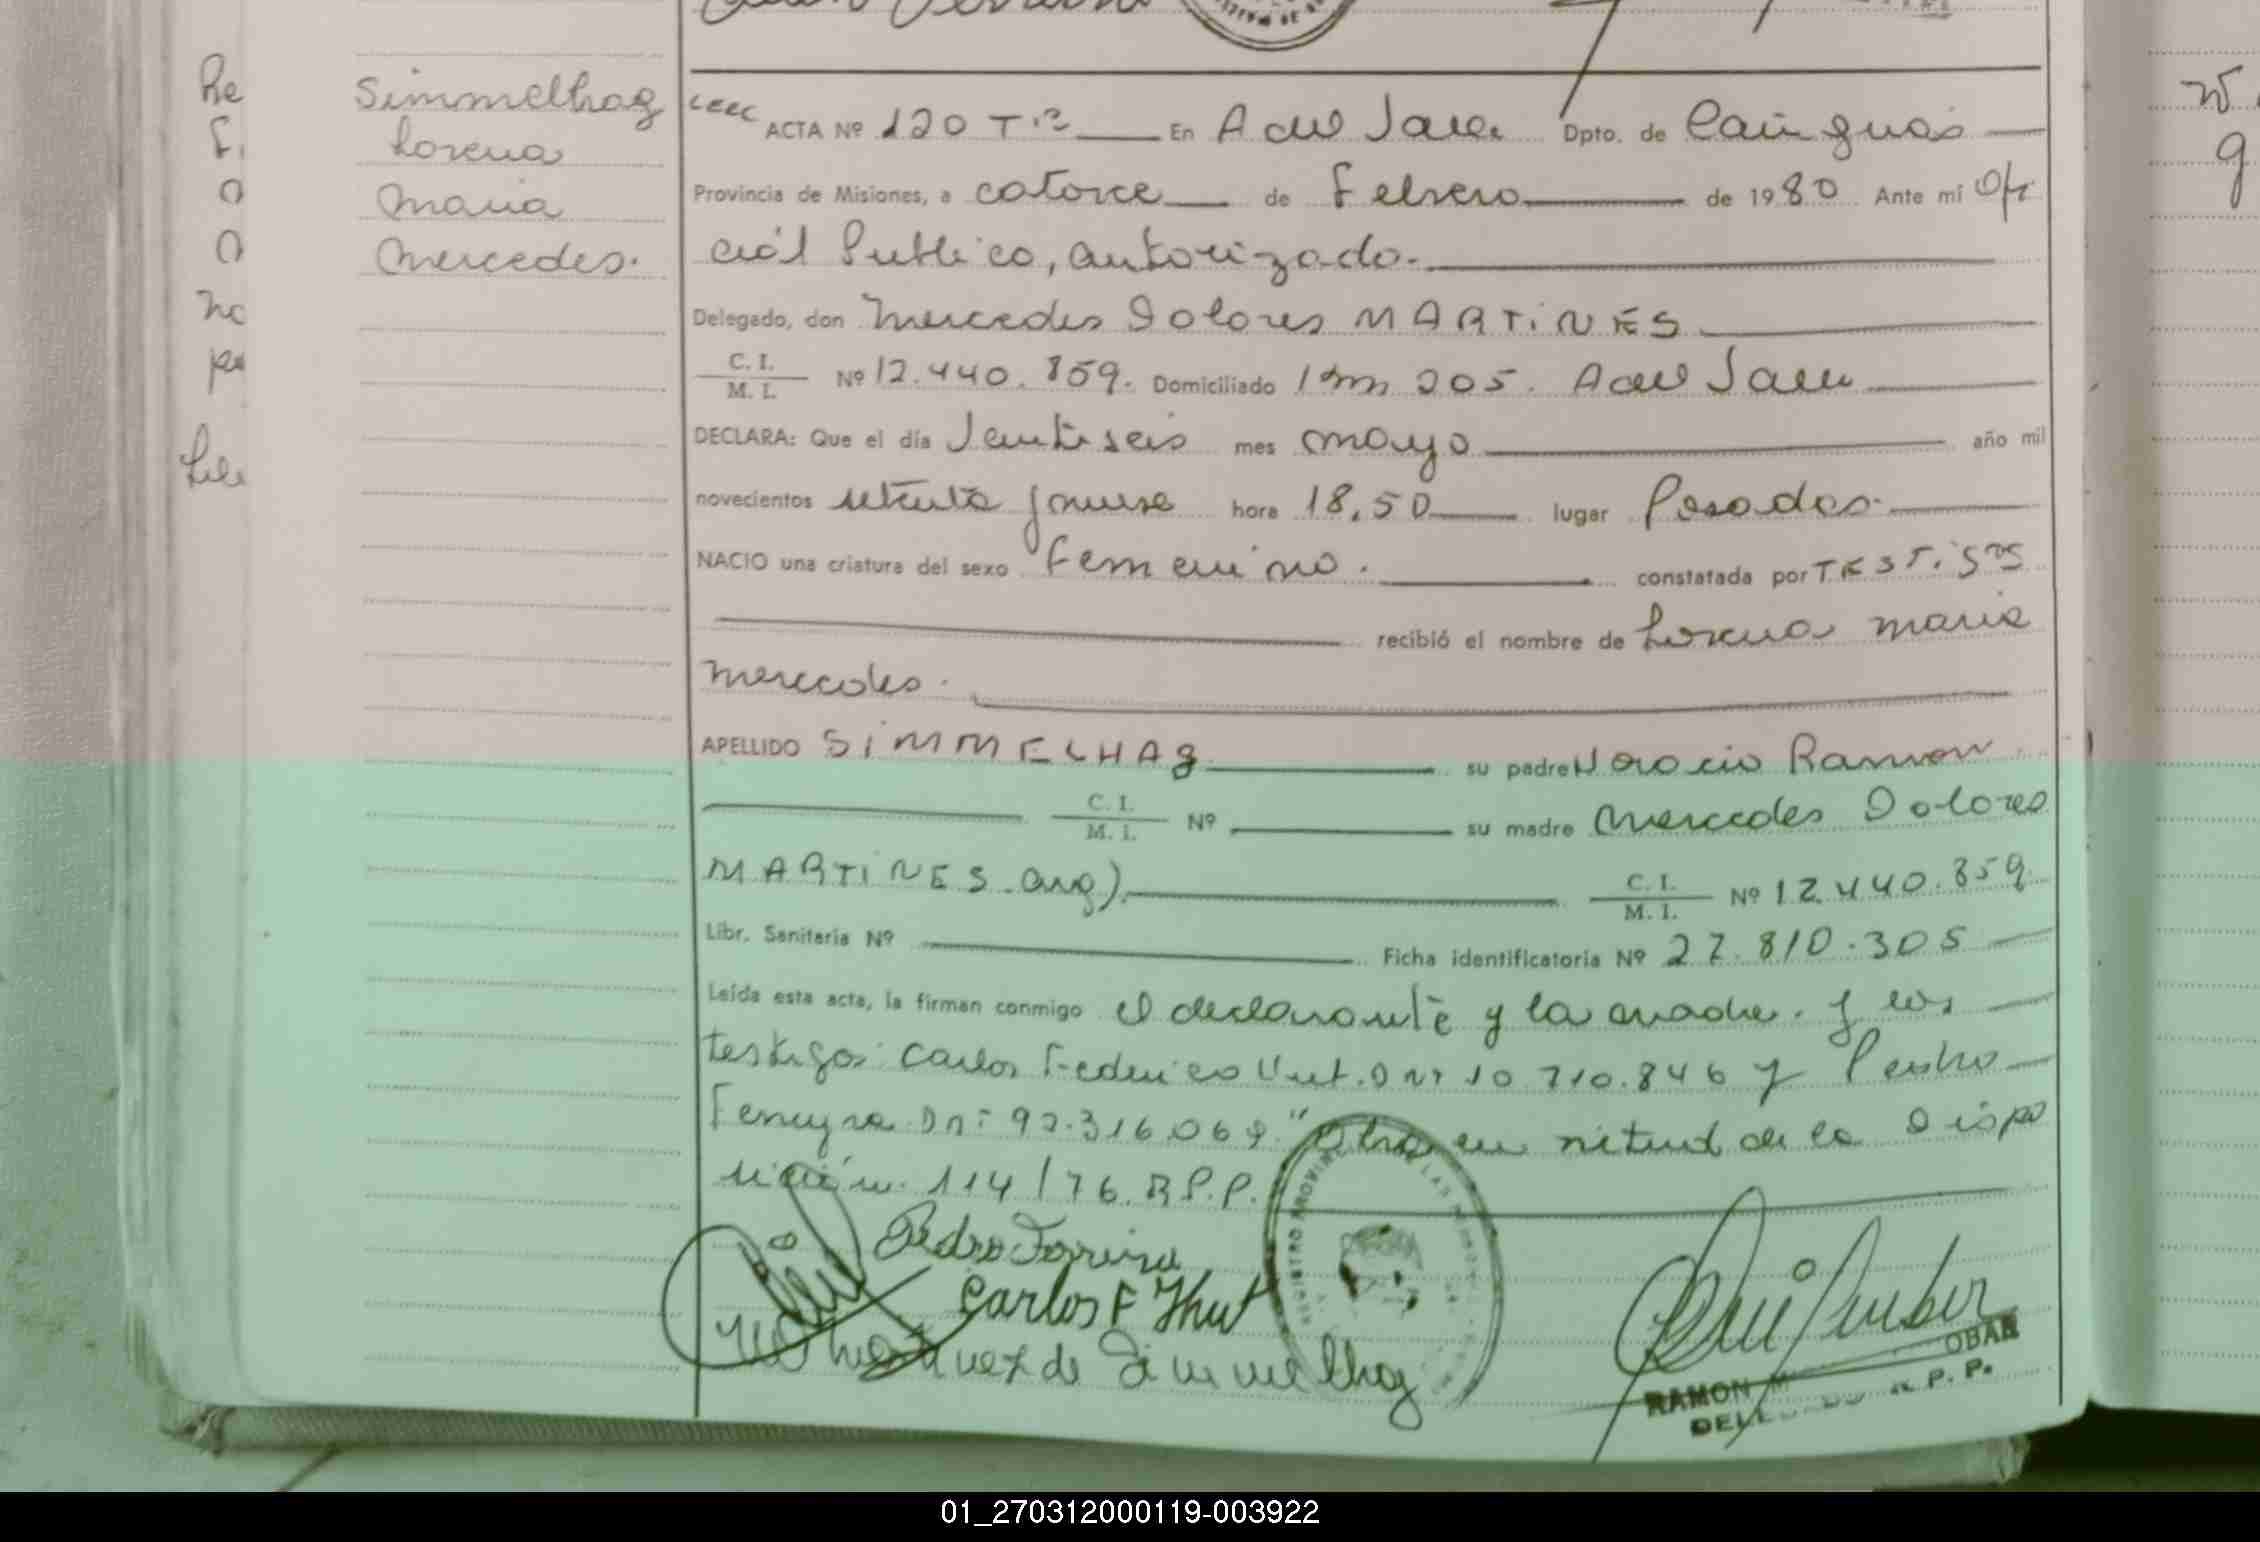 Simmelhag
Lorena
Maria
Mercedes.
ACTA Nº 120 Tº En A del Valle Dpto. de Cainguas
Provincia de Misiones, a catorce de Febrero de 1980 Ante mi Ofi
cial Publico, autorizado.
Delegado, don Mercedes Dolores MARTINES
C. I. / M. I. Nº 12.440.859. Domiciliado Km 205. A del Valle
DECLARA: Que el día Veintiseis mes mayo año mil
novecientos setenta y nueve hora 18,50 lugar Posadas.
NACIO una criatura del sexo Femenino. constatada por TESTigos
recibió el nombre de Lorena Maria
Mercedes.
APELLIDO SiMMELHAg su padre Horacio Ramon
C. I. / M. I. Nº su madre Mercedes Dolores
MARTiNES arg) C. I. / M. I. Nº 12.440.859
Libr. Sanitaria Nº Ficha identificatoria Nº 27.810.305
Leída esta acta, la firman conmigo el declarante y la madre. y los
testigos: Carlos Federico 10.710.846 y Pedro
Ferreyra Dni 92.316.069. en virtud de la Dispo
sición. 114/76. R.P.P.
Pedro Ferreira
Carlos F Thut
de Simmelhag
RAMON OBAR
R. P. P.
01_270312000119-003922